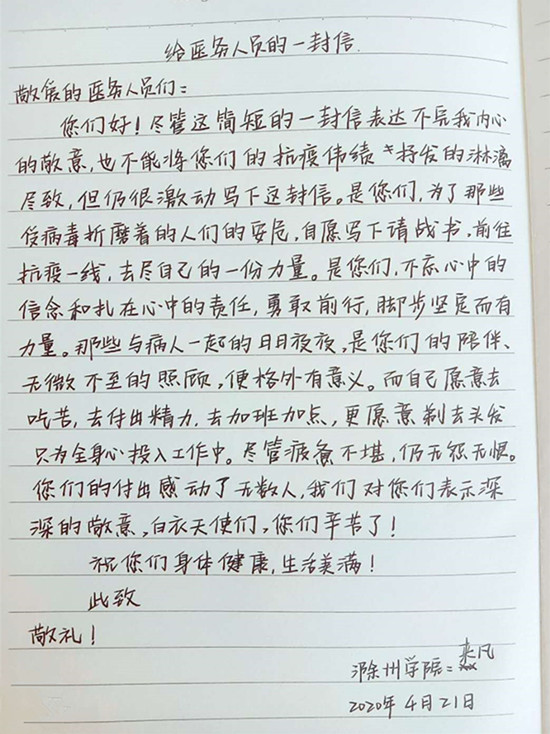 给医务人员的一封信.
敬爱的医务人员们:
您们好!尽管这简短的一封信表达不完我内心
的敬意,也不能将您们的抗疫伟绩 抒发的淋漓
尽致,但仍很激动写下这封信。是您们,为了那些
受病毒折磨着的人们的安危,自愿写下请战书,前往
抗疫一线,去尽自己的一份力量。是您们,不忘心中的
信念和扎在心中的责任,勇敢前行,脚步坚定而有
力量。那些与病人一起的日日夜夜,是您们的陪伴、
无微不至的照顾,便格外有意义。而自己愿意去
吃苦,去付出精力,去加班加点,更愿意剃去头发
只为全身心投入工作中。尽管疲惫不堪,仍无怨无恨。
您们的付出感动了无数人,我们对您们表示深
深的敬意,白衣天使们,您们辛苦了!
祝您们身体健康,生活美满!
此致
敬礼!
滁州学院: 凡
2020年4月21日